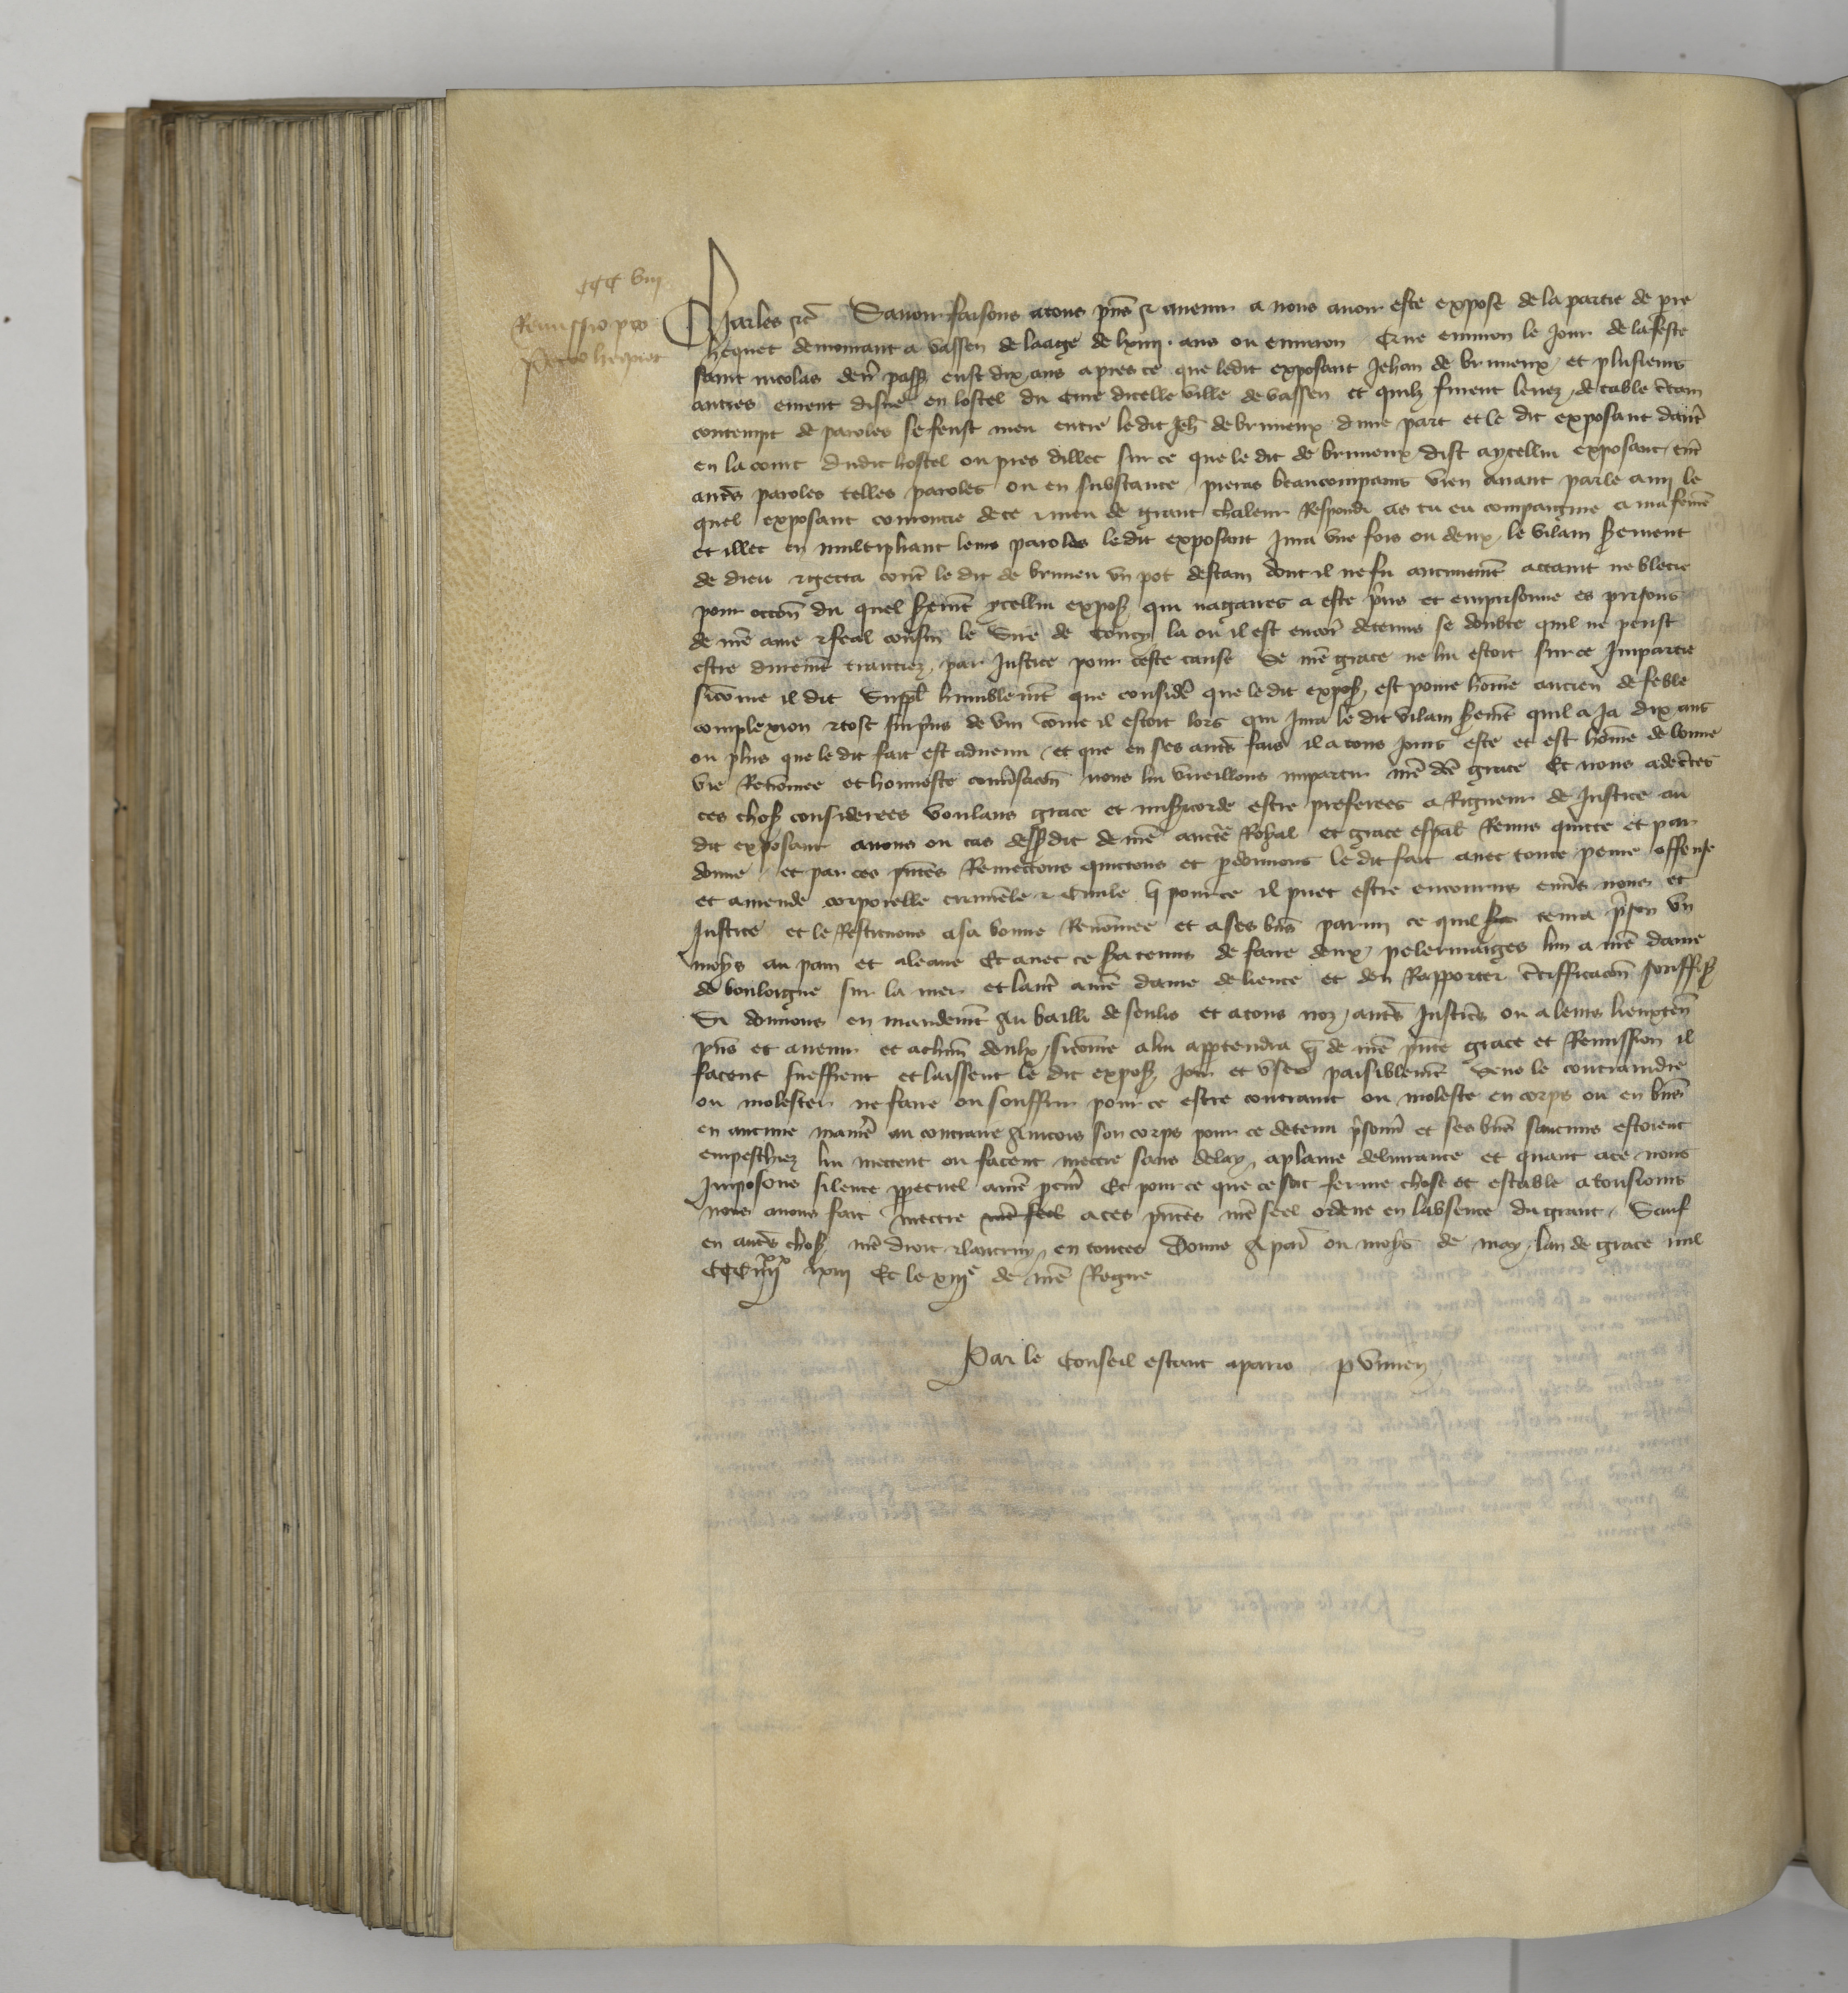 CCC viii
Remissio pro
Petro hequet
Charles etc Savoir faisons a tous pns et avenir a nous avoir este expose de la partie de pre
hequet demourant a vassen de laage de lxiiii. ans ou environ Que environ le jour de la feste
saint nicolas dern pass eust dix ans apres ce que ledit exposant Jehan de brumeux et plusieurs
autres eurent disne en lostel du Cure dicelle ville de vassen et quilz furent levez de table ctain
contempt de paroles se feust meu entre ledit Jeh de brumeux dune part et le dit exposant dautre
en la court dudit hostel ou pres dillec sur ce que le dit de brumeux dist a ycellui exposant entre
autres paroles telles paroles ou en substance pieras beaucompains vien avant parle a mi le
quel exposant comoutre de ce et meu de grant chaleur Respondi as tu eu compaignie a ma feme
et illec en multipliant leurs paroles ledit exposant Jura une fois ou deux le vilain serement
de dieu et gecta contre le dit de brumeu un pot destain dont il ne fu aucunemt attaint ne blecie
pour occon du quel seremt ycellui expos qui nagaires a este prins et emprisonne es prisons
de nre ame et feal cousin le Sire de Coucy la ou il est encor detenus se doubte quil ne peust
estre durement traictiez par Justice pour ceste cause Se nre grace ne lui estoit sur ce Impartie
sicome il dit Suppl humblemt que consider que le dit expos est poure home ancien de feble
complexion et tost surprins de vin come il estoit lors qui Jura le dit vilain seremt quil a Ja dix ans
ou plus que le dit fait est advenu et que en ses autres fais il a tous jours este et est home de bonne
vie Renomee et honneste conversacon nous lui vueillons impartir nre dce grace Et nous adecertes
ces choses considerees voulans grace et misericorde estre preferees a Rigueur de Justice au
dit exposant avons ou cas dessdit de nre aucte Royal et grace espal Remis quitte et par
donne et par ces pntes Remettons quittons et pdonnons le dit fait avec toute peine offense
et amende corporelle criminele et Civile q pour ce il puet estre encourus envers nous et
Justice et le Restituons a sa bonne Renomee et a ses biens parmi ce quil tenra prison un
moys au pain et a leaue Et avec ce sera tenus de faire deux pelerinaiges lun a nre dame
de bouloigne sur la mer et lautre a nre dame de lience et den Rapporter certifficacon souffis
Si donnons en mandemt Au bailli de senlis et a tous noz autres Justiciers ou a leurs lieuxten
pns et avenir et a chun deulx sicome a lui appartendra q de nre pnte grace et Remission il
facent sueffrent et laissent le dit expos joir et user paisiblemt Sens le contraindre
ou molester ne faire ou souffrir pour ce estre contraint ou moleste en corps ou en biens
en aucune maniere au contraire Aincois son corps pour ce detenu prisonnier et ses biens saucuns estoient
empeschiez lui mettent ou facent mettre sans delay a plaine delivrance et quant a ce nous
Imposons silence perpetuel a nre pcur Et pour ce que ce soit ferme chose et estable a tousiours
nous avons fait mettre nre seel a ces pntes nre seel ordene en labsence du grant Sauf
en autres chos nre droit et lautruy en toutes Donne A paris ou moys de may lan de grace mil
CCC iiiixx xiii Et le xiiie de nre Regne
Par le Conseil estant a paris p vimen